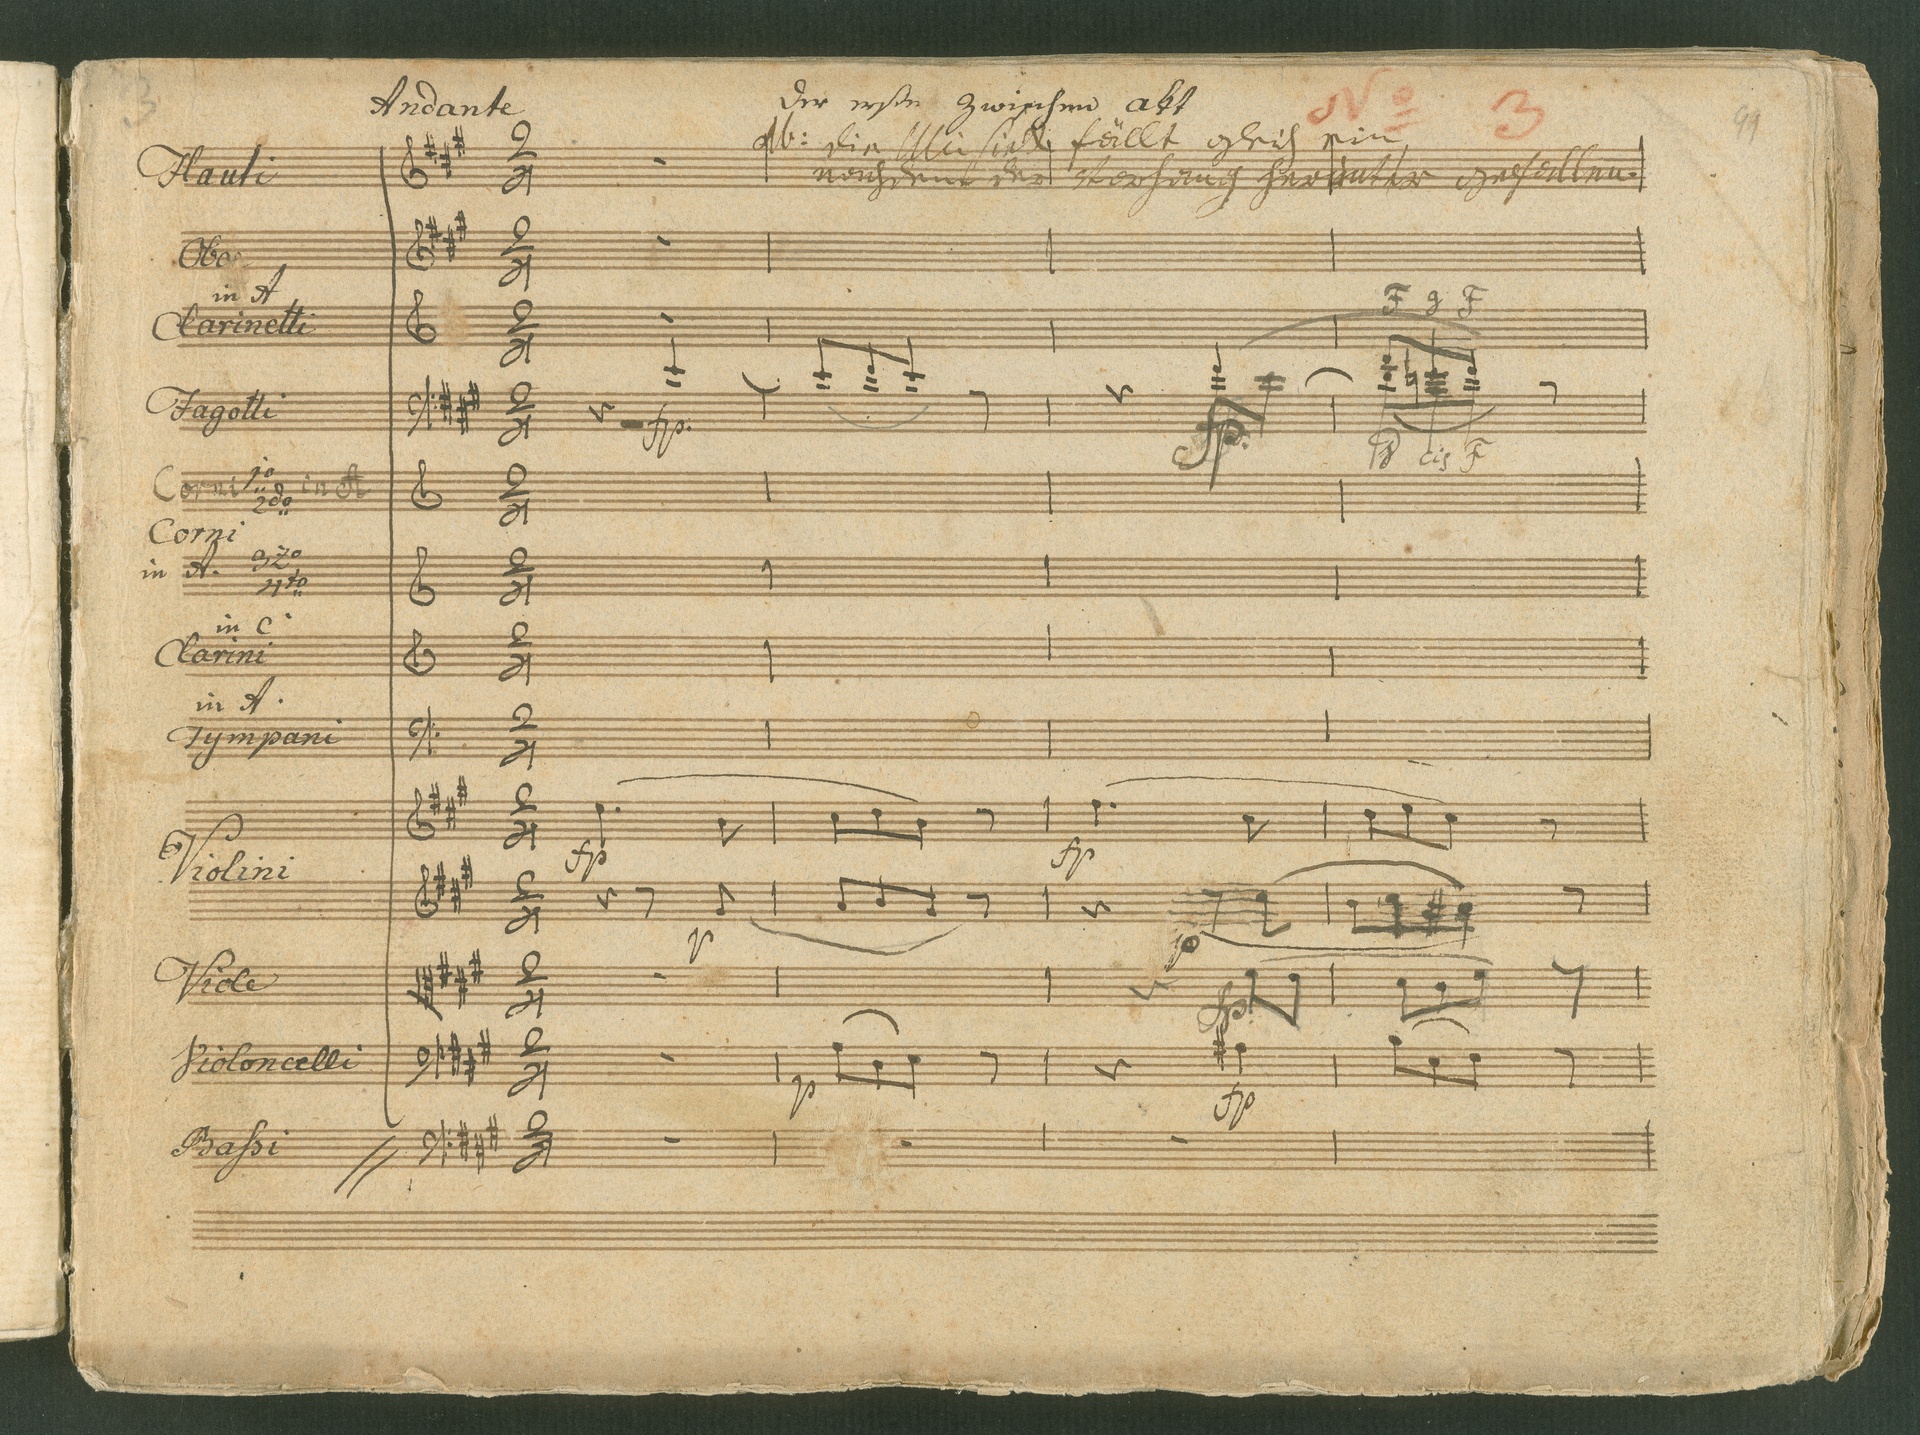 3
Andante
Der erste Zwischen akt
No 3
99
Nb: die Musick fällt gleich ein
nachdem der Vorhang herunter gefallen.
Flauti
Oboe
in A
Clarinetti
F g F
Fagotti
fp.
fp.
cis F
Corni 1o in A
2do
Corni
in A. 3zo
4to
in C
Clarini
in A.
Tympani
Violini
fp
fp
p
p
Viole
fp.
Violoncelli
p
fp
Bassi